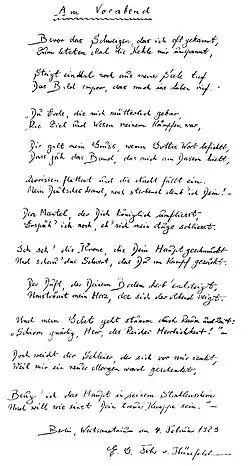 Am Vorabend
Bevor das Schweigen, das ich oft gekannt,
Zum letzten Mal die Kehle mir umspannt,
Steigt einmal noch aus meiner Seele tief
Das Bild empor, was mich ins Leben rief.
Du Erde, die mich mütterlich gebar,
Die Ziel und Wesen meinem Kämpfen war,
Dir gilt mein Gruß, wenn Gottes Wort befiehlt,
Dass das Band, das mich am Dasein hielt,
Zerrissen flattert und die Nacht fällt ein.
Mein Deutsches Land, noch sterbend denk ich Dein! -
Den Mantel, der Dich königlich umfliesst,
Erspäh' ich noch, eh' sich mein Auge schliesst.
Ich seh' die Krone, die Dein Haupt geschmückt
Und schau' das Schwert, das Du im Kampf gezückt.
Der Duft, der Deinem Boden herb entsteigt,
Umströmt mein Herz, das sich der Abend neigt.
Und mein Gebet geht stumm durch Raum und Zeit:
"Schirm gnädig, Herr, des Reiches Herrlichkeit!" -
Doch weicht der Schleier, der sich vor mir senkt,
Weil mir ein neuer Morgen ward geschenkt,
Beug' ich das Haupt in seinem Strahlenschein
Und will wie einst Dein treuer Knappe sein. -
Berlin, am 4. Februar 1929
v. Hünefeld